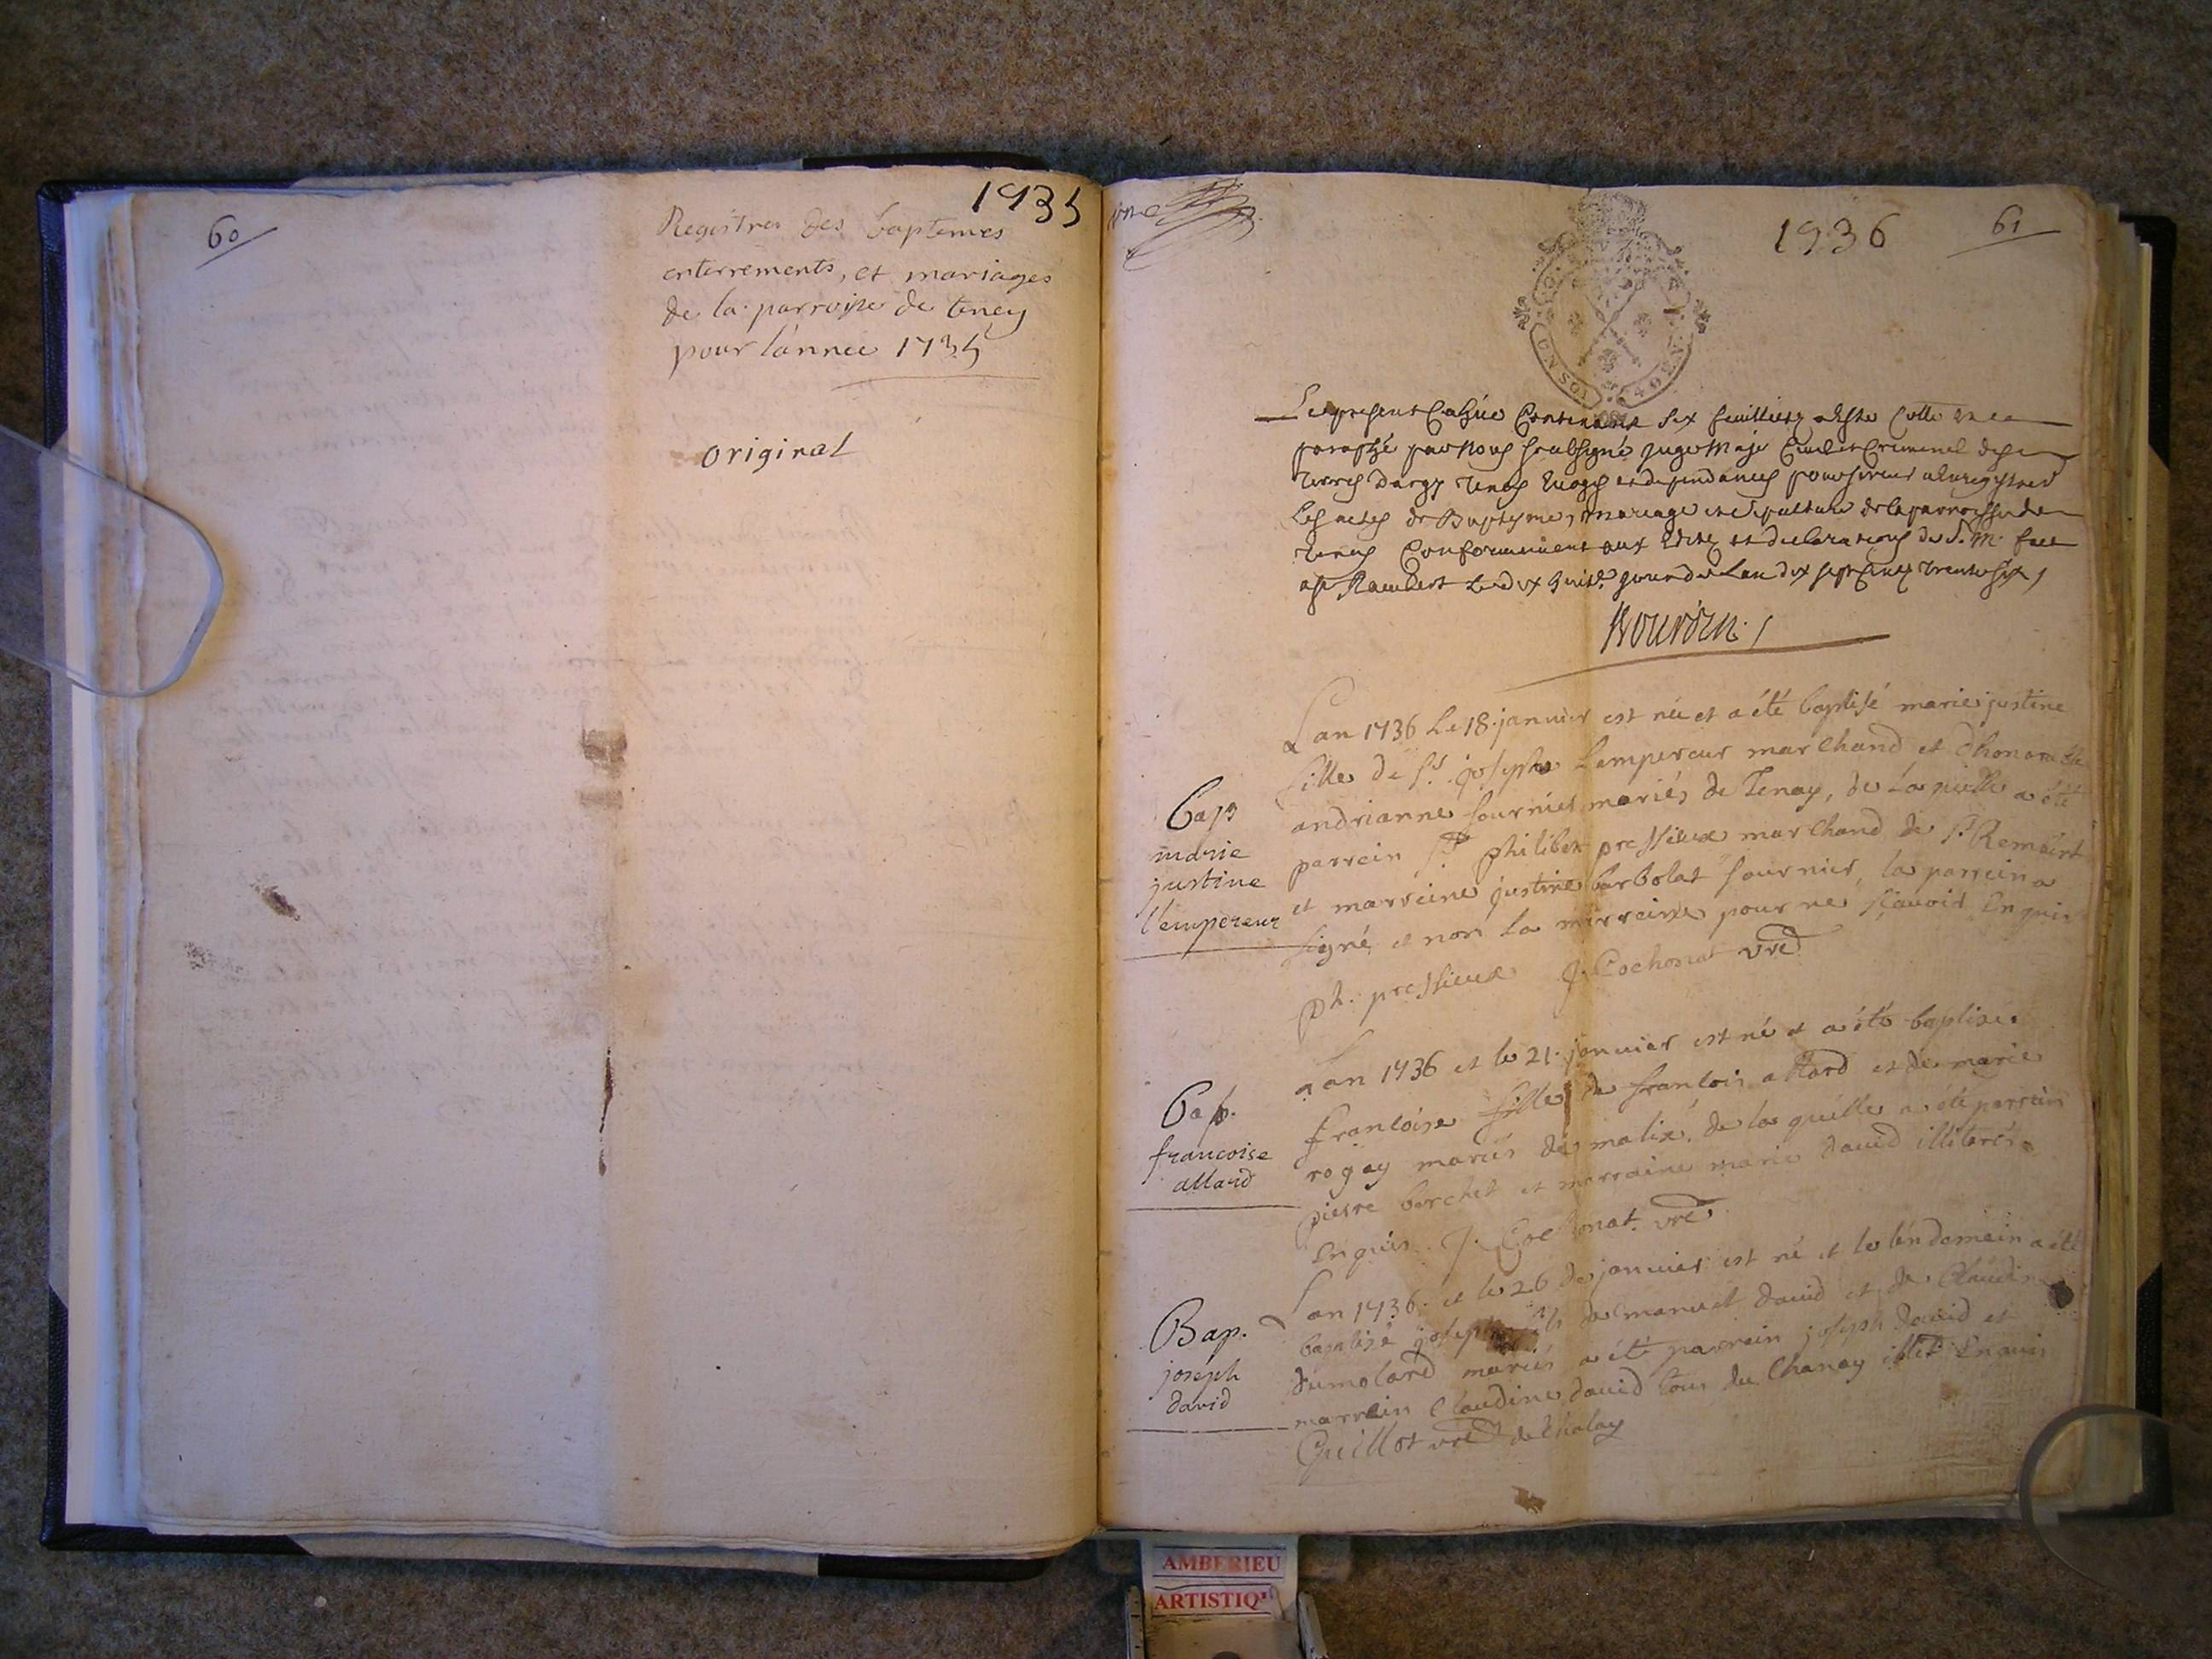 60
1735
Registres des baptemes
enterrements, et mariages
de la parroisse de teney
pour l'année 1735
original
une
1736
61
UN SOL
Le present Cahier Contenant six feuillietz a esté Cotté et
paraphé par Nous soubsigné Juge Maje Civil et Criminel des
terres dargy tenay et dependances pour servir a Enregistrer
Les actes de Baptesme, Mariage et sepulture de la parroisse de
tenay Conformement aux Edits et declarations de S. M. fait
a St Rambert Le dix huit. jour de Lan dix sept Cent trente six,
Bourdin
L'an 1736 Le 18. janvier est née et a été baptisé marie justine
fille de Sr. joseph Lempereur marchand et d'honorable
andrianne fournier mariés de Tenay, de La quelle a été
parrein Sr. philibert pressieux marchand de St. Rembert
et marreine justine barbolat fournier, le parrein a
signé et non La marreine pour ne sçavoir Enquis
ph. pressieux J. Cochonat vre
Bap
marie
justine
l'empereur
L'an 1736 et le 21. janvier est né et a été baptisée
francoise fille de francois allard et de marie
rogey mariés de malix, de la quelle a été parrein
pierre borchet et marraine marie david illiterés
Enquis. J. Cochonat. vre
Bap.
francoise
allard
L'an 1736. et le 26 de janvier est né et le lendemain a été
baptisé joseph fils de manuel david et de Claudine
dumolard mariés a été parrein joseph david et
marrein Claudine david tous du Chanay illet. Enquis
Guillot vre de Chaley
Bap.
joseph
david
AMBERIEU
ARTISTIQ